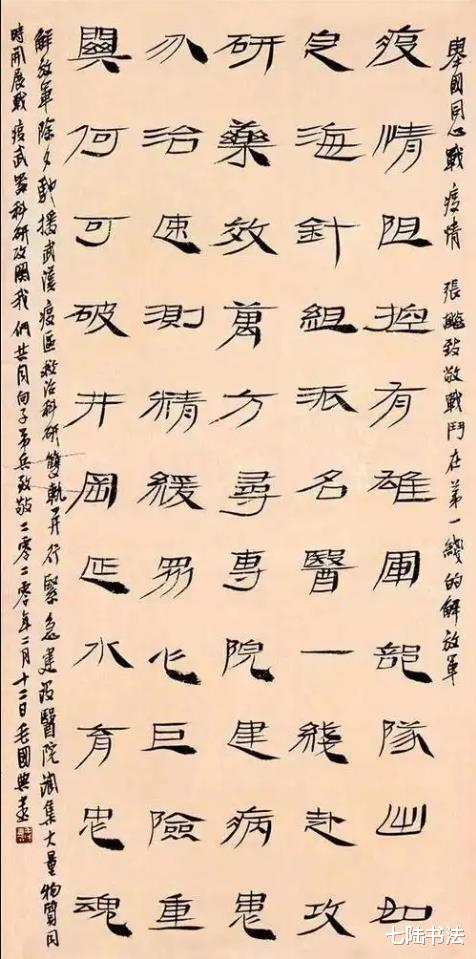 舉國同心戰疫情 張 致敬戰鬥在第一綫的解放軍
疫情阻控有雄軍部隊出如
定海針組派名醫一綫赴攻
研藥效萬方尋專院建病患
分治速測精緩 化巨險重
興何可破井岡延水育忠魂
解放軍除夕馳援武漢疫區救治科研雙軌并行緊急建設醫院調集大量物質同
時開展戰疫武器科研攻關我們共同向子弟兵致敬二零二零年二月十二日毛國典書
七陆书法